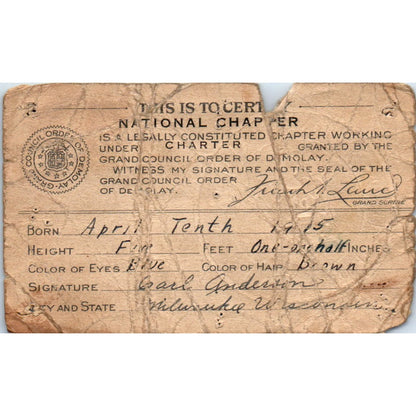 THIS IS TO CERT
NATIONAL CHAPTER
IS A LEGALLY CONSTITUTED CHAPTER WORKING
UNDER CHARTER GRANTED BY THE
GRAND COUNCIL ORDER OF DEMOLAY.
WITNESS MY SIGNATURE AND THE SEAL OF THE
GRAND COUNCIL ORDER
OF DEMOLAY.
Frank S. Land
GRAND SCRIBE
GRAND COUNCIL ORDER OF DEMOLAY
BORN April Tenth 1915
HEIGHT Five FEET One-one half INCHES
COLOR OF EYES Blue COLOR OF HAIR Brown
SIGNATURE Carl Anderson
AND STATE Milwaukee Wisconsin